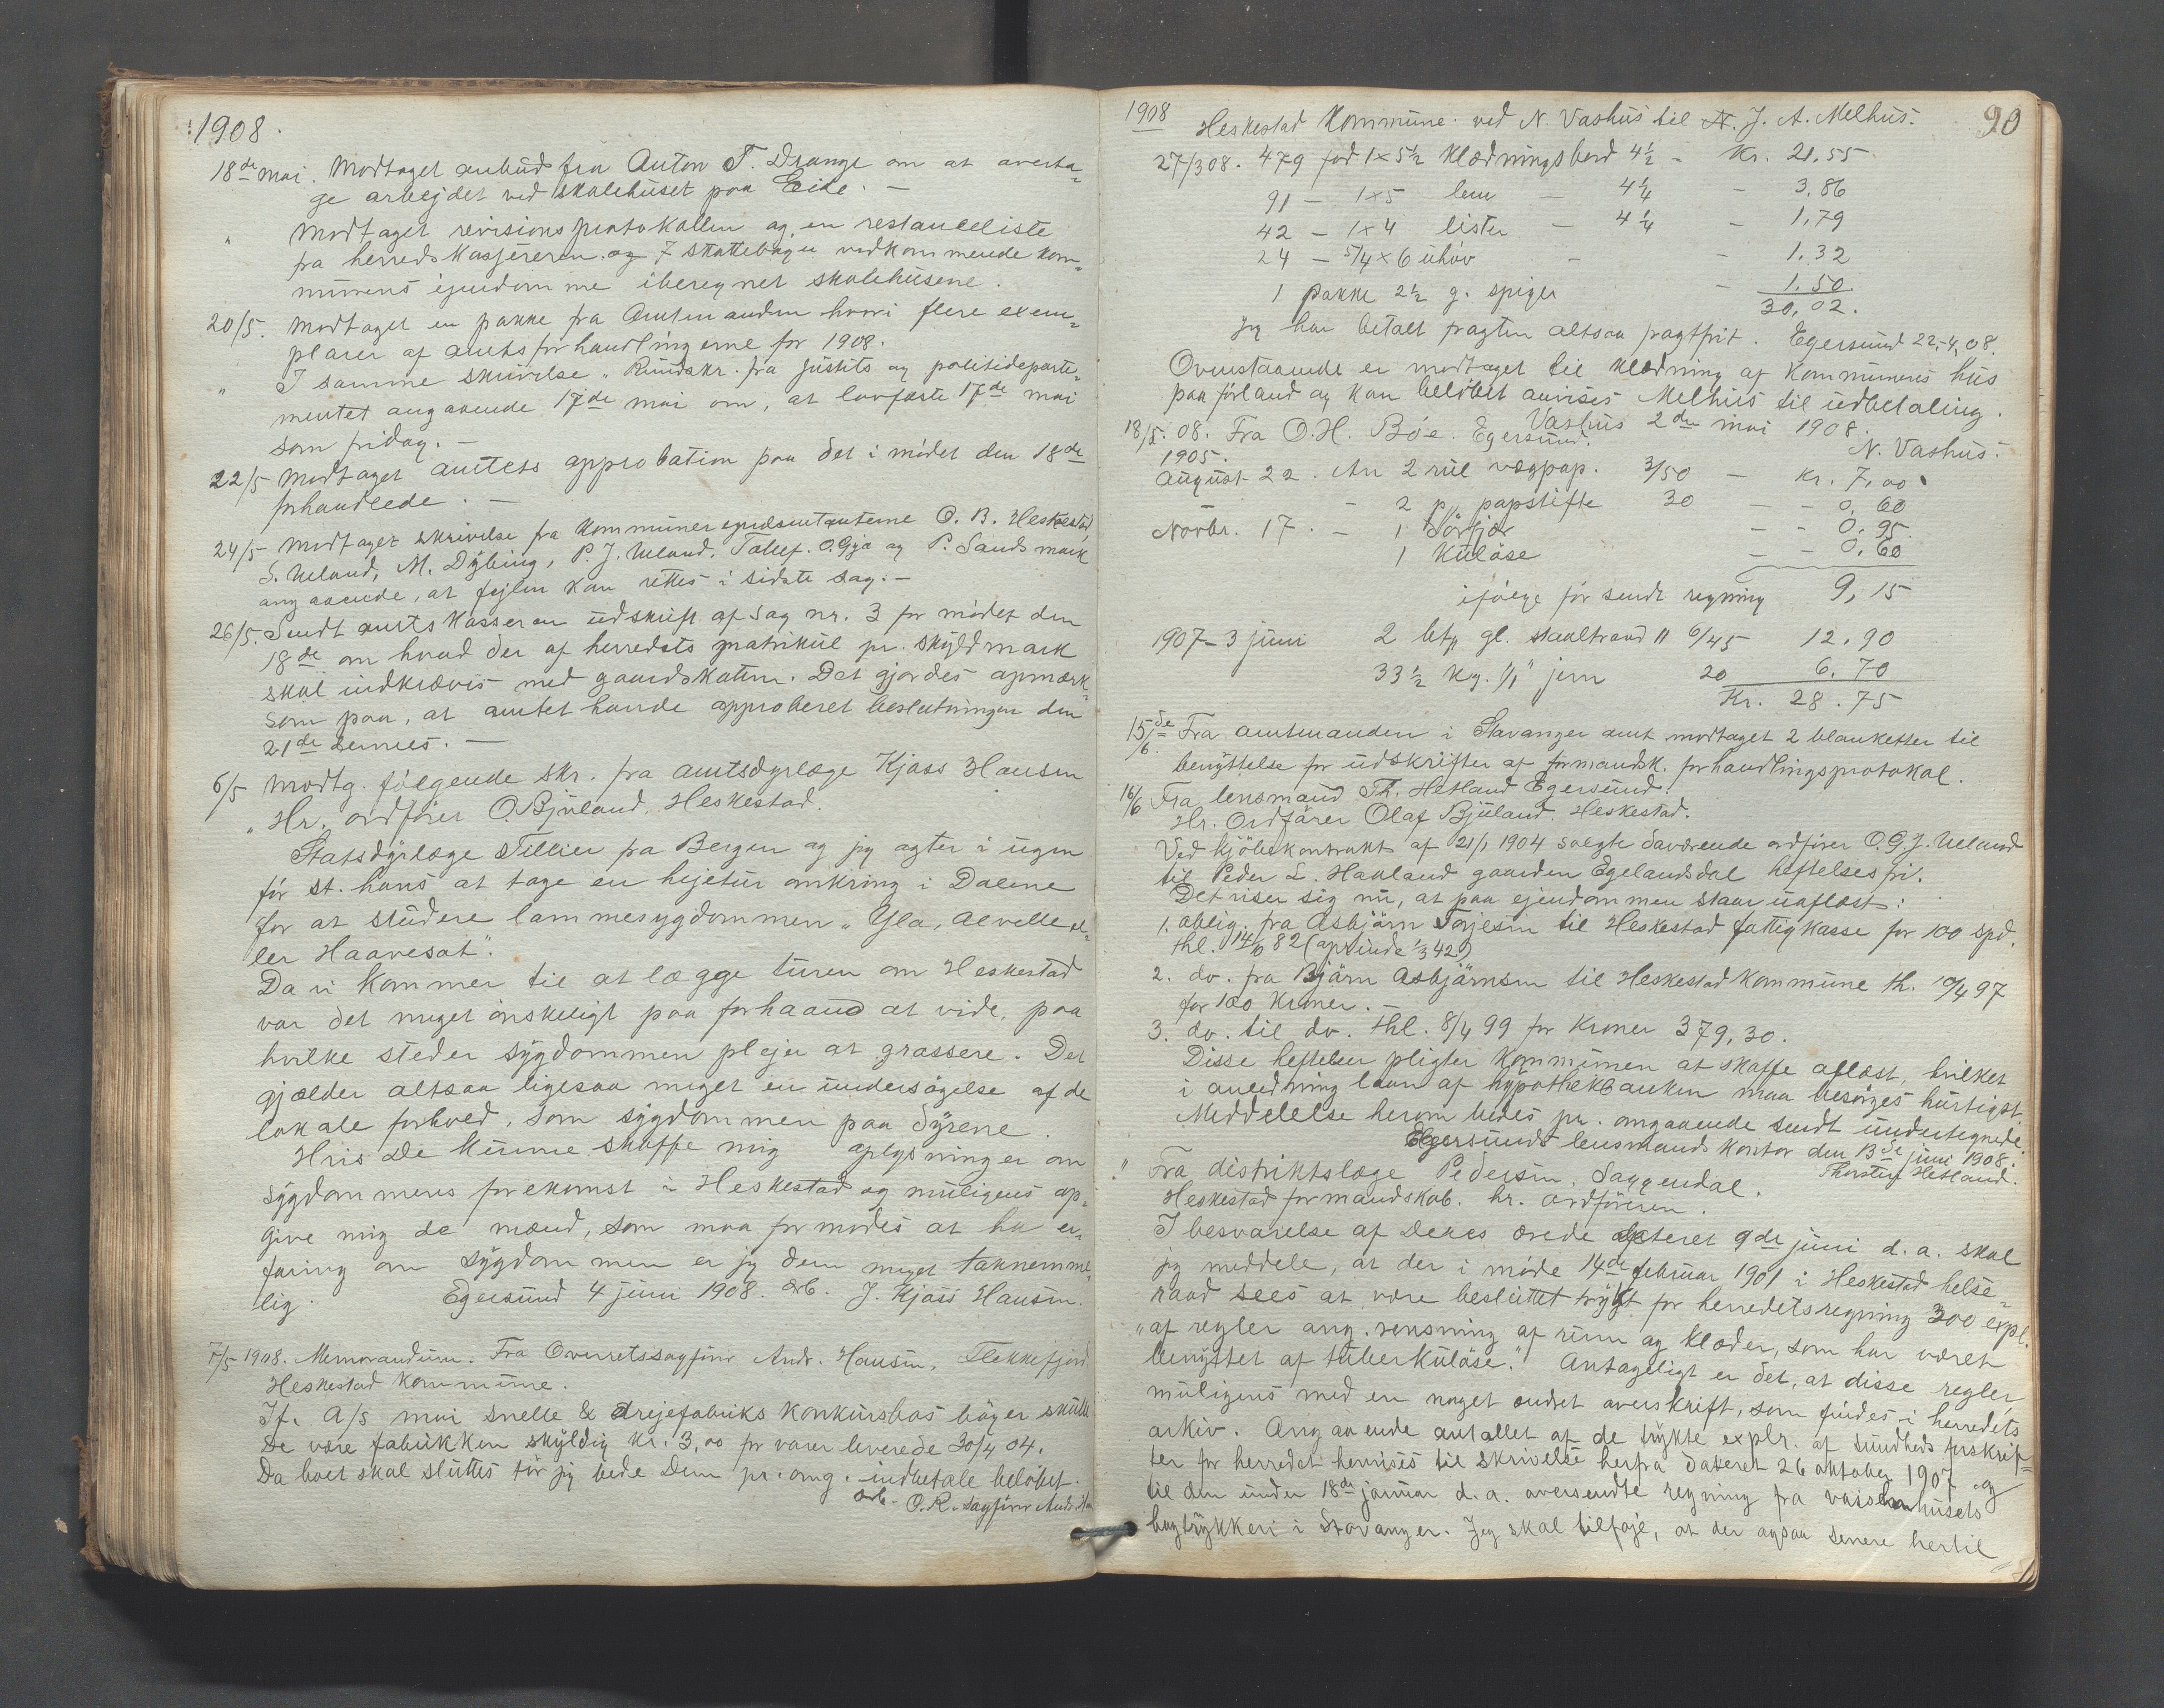 1908.
18de mai. Modtaget anbud fra Anton T. Drange om at averta-
ge arbejdet ved skolehuset paa Eide. —
" Modtaget revisionsprotokollen og en restanceliste
fra herredskasjereren og 7 skattebøger vedkommende kom-
munens ejendomme iberegnet skolehusene.
20/5. Modtaget en pakke fra Amtmanden hvori flere exem-
plarer af amtsforhandlingerne for 1908.
" I samme skrivelse "Rundskr. fra justits og politideparte-
mentet angaaende 17de mai om, at lovfæste 17de mai
som fridag. —
22/5 Modtaget amtets approbation paa det i mødet den 18de
forhandlede. —
24/5 Modtaget skrivelse fra kommunerepræsentanterne O. B. Heskestad,
S. Ueland, M. Dybing, P. J. Ueland, Tollef. O. Gya og P. Sandsmark
angaaende, at fejlen kan rettes i sidste sag. —
26/5. Sendt amtskasseren udskrift af sag nr. 3 for mødet den
18de om hvad der af herredets matrikul pr. skyldmark
skal indkræves med gaardskatten. Det gjordes opmærk-
som paa, at amtet havde approberet beslutningen den
21de dennes. —
6/5 Modtg. følgende skr. fra amtsdyrlæge Kjøss Hansen
"Hr. ordfører O. Bjuland, Heskestad.
Statsdyrlæge Tillier fra Bergen og jeg agter i ugen
før st. hans at tage en hejetur omkring i Dalene
for at studere lammesygdommen "Gla, Alvelle el-
ler Haavesot".
Da vi kommer til at lægge turen om Heskestad
var det meget ønskeligt paa forhaand at vide, paa
hvilke steder sygdommen plejer at grassere. Det
gjælder altsaa ligesaa meget en undersøgelse af de
lokale forhold, som sygdommen paa dyrene.
Hvis De kunne skaffe mig oplysninger om
sygdommens forekomst i Heskestad og muligens op-
give mig de mænd, som maa formodes at ha er-
faring om sygdommen er jeg dem meget taknemme-
lig. Egersund 4 juni 1908. Ærb. J. Kjøss Hansen.
7/5 1908. Memorandum. Fra Overretssagfører Andr. Hansen, Flekkefjord
Heskestad kommune.
If. A/S moi snelle & drejefabriks konkursbos bøger skulle
De være fabrikken skyldig kr. 3,00 for varer leverede 30/4 04.
Da boet skal sluttes tør jeg bede Dem pr. omg. indbetale beløbet.
Ærb. O.R. sagfører Andr. Ha
1908 Heskestad Kommune ved N. Vashus til J. A. Melhus. 90
27/3 08. 479 fod 1 x 5½ klædningsbord 4½ - Kr. 21.55
91 — 1x5 lem — 4¼ - 3,86
42 — 1x4 lister — 4¼ - 1,79
24 — 5/4 x 6 uhøv - - 1.32
1 pakke 2½ g. spiger - 1.50
30,02.
Jeg har betalt fragten altsaa fragtfrit. Egersund 22-4, 08.
Ovenstaaende er modtaget til klædning af kommunens hus
paa Førland og kan beløbet anvises Melhus til udbetaling.
Vashus 2den mai 1908.
N. Vashus.
18/5. 08. Fra O. H. Bøe. Egersund.
1905.
August 22. An 2 rul vægpap. 3/50 — Kr. 7,00
— 2 p. papstifte 30 — - 0,60
Novbr. 17. — 1 Dørfjær — - 0,95
1 Kulöse — - 0,60
ifølge før sendt regning 9,15
1907 - 3 juni 2 bet gl. staaltraad 11 6/45 12.90
33½ kg. 1/1" jern 20 6.70
Kr. 28.75
15de/6. Fra amtmanden i Stavanger amt modtaget 2 blanketter til
benyttelse for udskrifter af formandsk. forhandlingsprotokol.
16/6 Fra lensmand Th. Hetland Egersund.
Hr. Ordfører Olaf Bjuland. Heskestad.
Ved kjøbekontrakt af 21/1 1904 solgte daværende ordfører O. G. J. Ueland
til Peder L. Haaland gaarden Egelandsdal heftelsesfri.
Det viser sig nu, at paa ejendommen staar uaflæst:
1. oblig. fra Asbjørn Torjesen til Heskestad fattigkasse for 100 spd.
thl. 14/6 82 (oprinde 1/3 42)
2. do. fra Bjørn Asbjørnsen til Heskestad kommune th. 10/4 97
for 100 kroner. —
3. do. til do. thl. 8/4 99 for kroner 379,30.
Disse heftelser pligter kommunen at skaffe aflæst, hvilket
i anledning laan af hypothekbanken maa besørges hurtigst.
Meddelelse herom bedes pr. omgaaende sendt undertegnede.
Egersunds lensmands kontor den 13de juni 1908.
Thorstein Hetland.
" Fra distriktslæge Pedersen, Soggendal.
Heskestad formandskab. hr. ordføreren.
I besvarelse af Deres ærede dateret 9de juni d. a. skal
jeg meddele, at der i møde 14de februar 1901 i Heskestad helse-
raad sees at være besluttet trykt for herredets regning 300 expl.
"af regler ang. rensning af rum og klæder, som har været
benyttet af tuberkuløse." Antageligt er det, at disse regler
muligens med en noget andet overskrift, som findes i herredets
arkiv. Angaaende antallet af de trykte explr. af sundhedsforskrif-
ter for herredet henvises til skrivelse herfra dateret 26 oktober 1907 og
til den under 18de januar d. a. oversendte regning fra vaisenhusets
bogtrykkeri i Stavanger. Jeg skal tilføje, at der ogsaa senere hertil